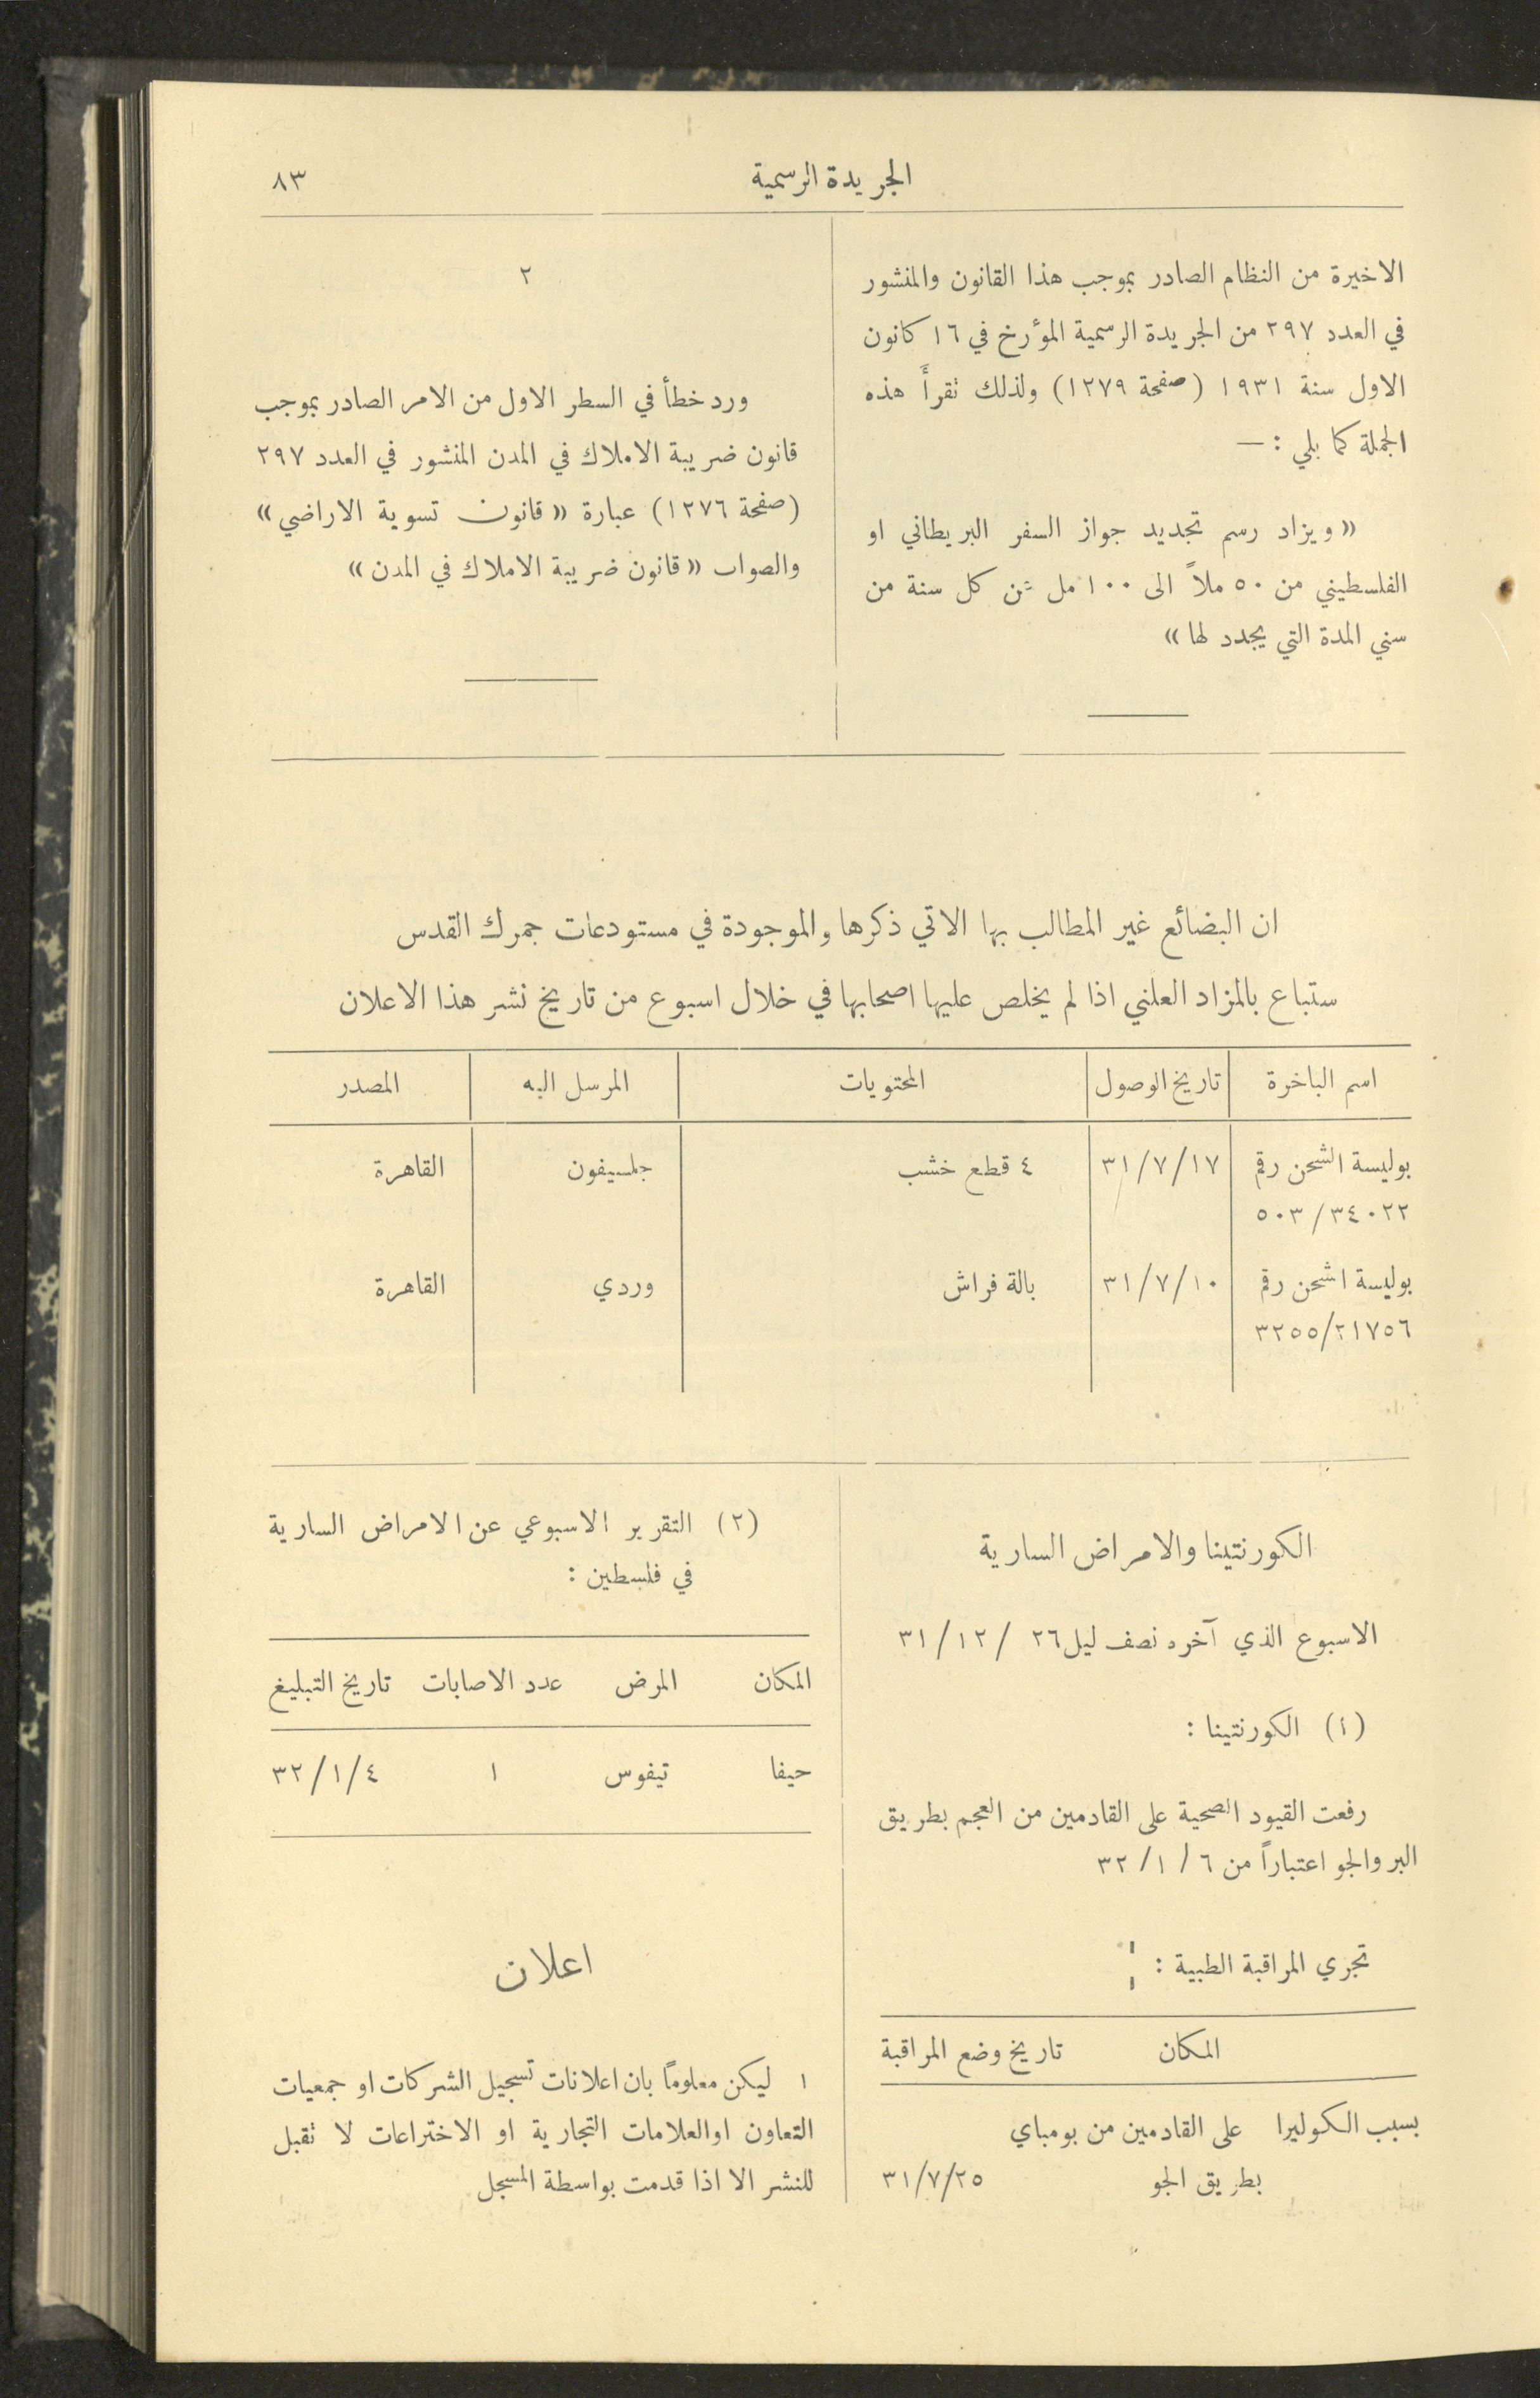 الجريدة الرسمية
٨٣
الاخيرة من النظام الصادر بموجب هذا القانون والمنشور
في العدد ٢٩٧ من الجريدة الرسمية المؤرخ في ١٦ كانون
الاول سنة ١٩٣١ (صفحة ١٢٧٩) ولذلك تقرأ هذه
الجملة كما يلي : —
«ويزاد رسم تجديد جواز السفر البريطاني او
الفلسطيني من ٥٠ ملاً الى ١٠٠ مل عن كل سنة من
سني المدة التي يجدد لها»
٢
ورد خطأ في السطر الاول من الامر الصادر بموجب
قانون ضريبة الاملاك في المدن المنشور في العدد ٢٩٧
(صفحة ١٢٧٦) عبارة «قانون تسوية الاراضي»
والصواب «قانون ضريبة الاملاك في المدن»
ان البضائع غير المطالب بها الاتي ذكرها والموجودة في مستودعات جمرك القدس
ستباع بالمزاد العلني اذا لم يخلص عليها اصحابها في خلال اسبوع من تاريخ نشر هذا الاعلان
اسم الباخرة تاريخ الوصول المحتويات المرسل اليه المصدر
بوليسة الشحن رقم ٣١/٧/١٧ ٤ قطع خشب جلسيفون القاهرة
٥٠٣/٣٤٠٢٢
بوليسة الشحن رقم ٣١/٧/١٠ بالة فراش وردي القاهرة
٣٢٥٥/٢١٧٥٦
الكورنتينا والامراض السارية
الاسبوع الذي آخره نصف ليل ٢٦ /١٢/ ٣١
(١) الكورنتينا :
رفعت القيود الصحية على القادمين من العجم بطريق
البر والجو اعتباراً من ٦ /١/ ٣٢
تجري المراقبة الطبية :
المكان تاريخ وضع المراقبة
بسبب الكوليرا على القادمين من بومباي
بطريق الجو ٣١/٧/٢٥
(٢) التقرير الاسبوعي عن الامراض السارية
في فلسطين :
المكان المرض عدد الاصابات تاريخ التبليغ
حيفا تيفوس ١ ٣٢/١/٤
اعلان
١ ليكن معلوماً بان اعلانات تسجيل الشركات او جمعيات
التعاون او العلامات التجارية او الاختراعات لا تقبل
للنشر الا اذا قدمت بواسطة المسجل